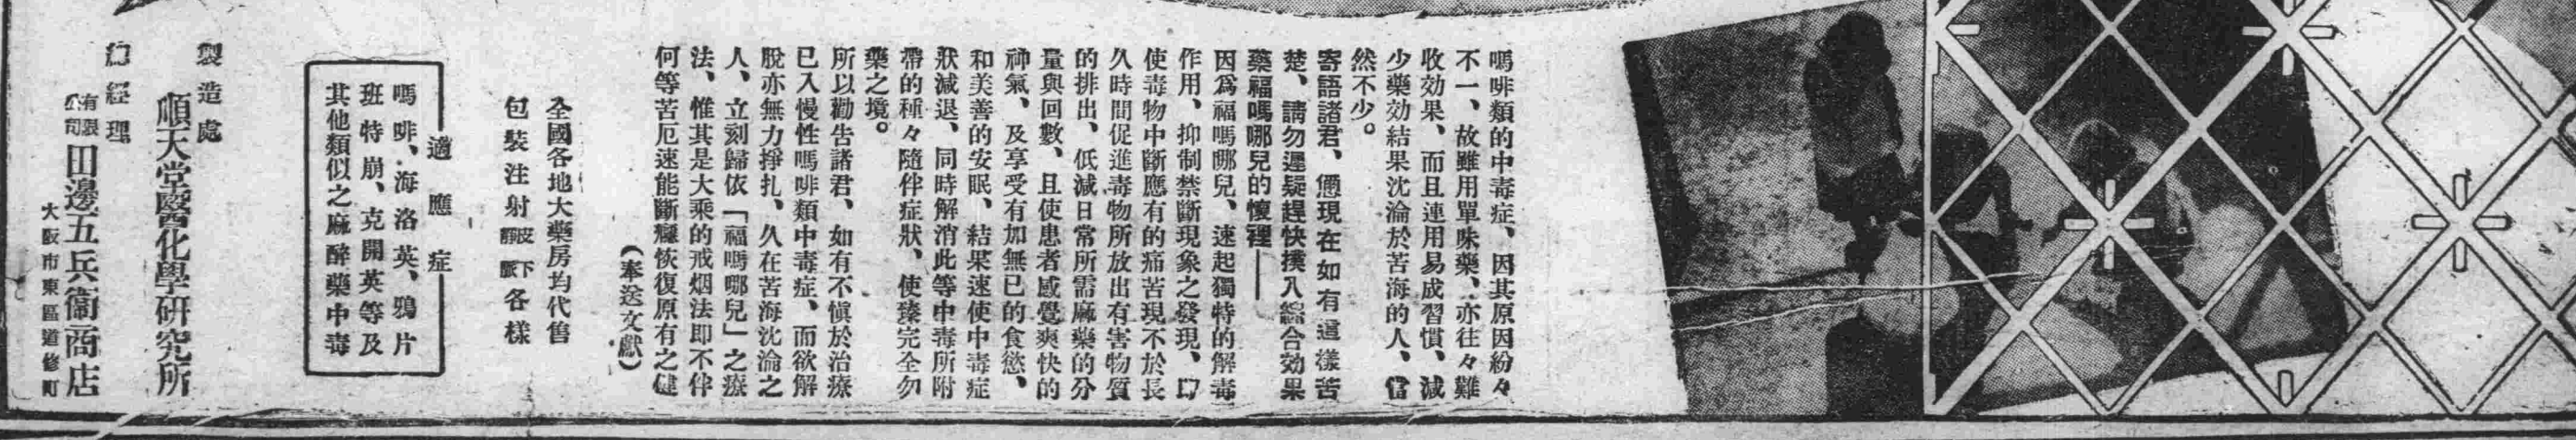 嗎啡類的中毒症、因其原因紛々
不一、故雖用單味藥、亦往々難
收効果、而且連用易成習慣、減
少藥効結果沈淪於苦海的人、當
然不少。
寄語諸君、儻現在如有這樣苦
楚、請勿遲疑趕快撲入綜合効果
藥福嗎哪兒的懷裡——
因爲福嗎哪兒、速起獨特的解毒
作用、抑制禁斷現象之發現、
使毒物中斷應有的痛苦現不於長
久時間促進毒物所放出有害物質
的排出、低減日常所需麻藥的分
量與回數、且使患者感覺爽快的
神氣、及享受有加無已的食慾、
和美善的安眠、結果速使中毒症
狀減退、同時解消此等中毒所附
帶的種々隨伴症狀、使臻完全勿
藥之境。
所以勸告諸君、如有不愼於治療
已入慢性嗎啡類中毒症、而欲解
脫亦無力掙扎、久在苦海沈淪之
人、立刻歸依「福嗎哪兒」之療
法、惟其是大乘的戒烟法即不伴
何等苦厄速能斷癮恢復原有之健
(奉送文獻)
全國各地大藥房均代售
包裝注射皮下靜脈各樣
適應症
嗎啡、海洛英、鴉片
班特崩、克開英等及
其他類似之麻醉藥中毒
製造處
順天堂醫化學研究所
經理
有限公司田邊五兵衞商店
大阪市東區道修町